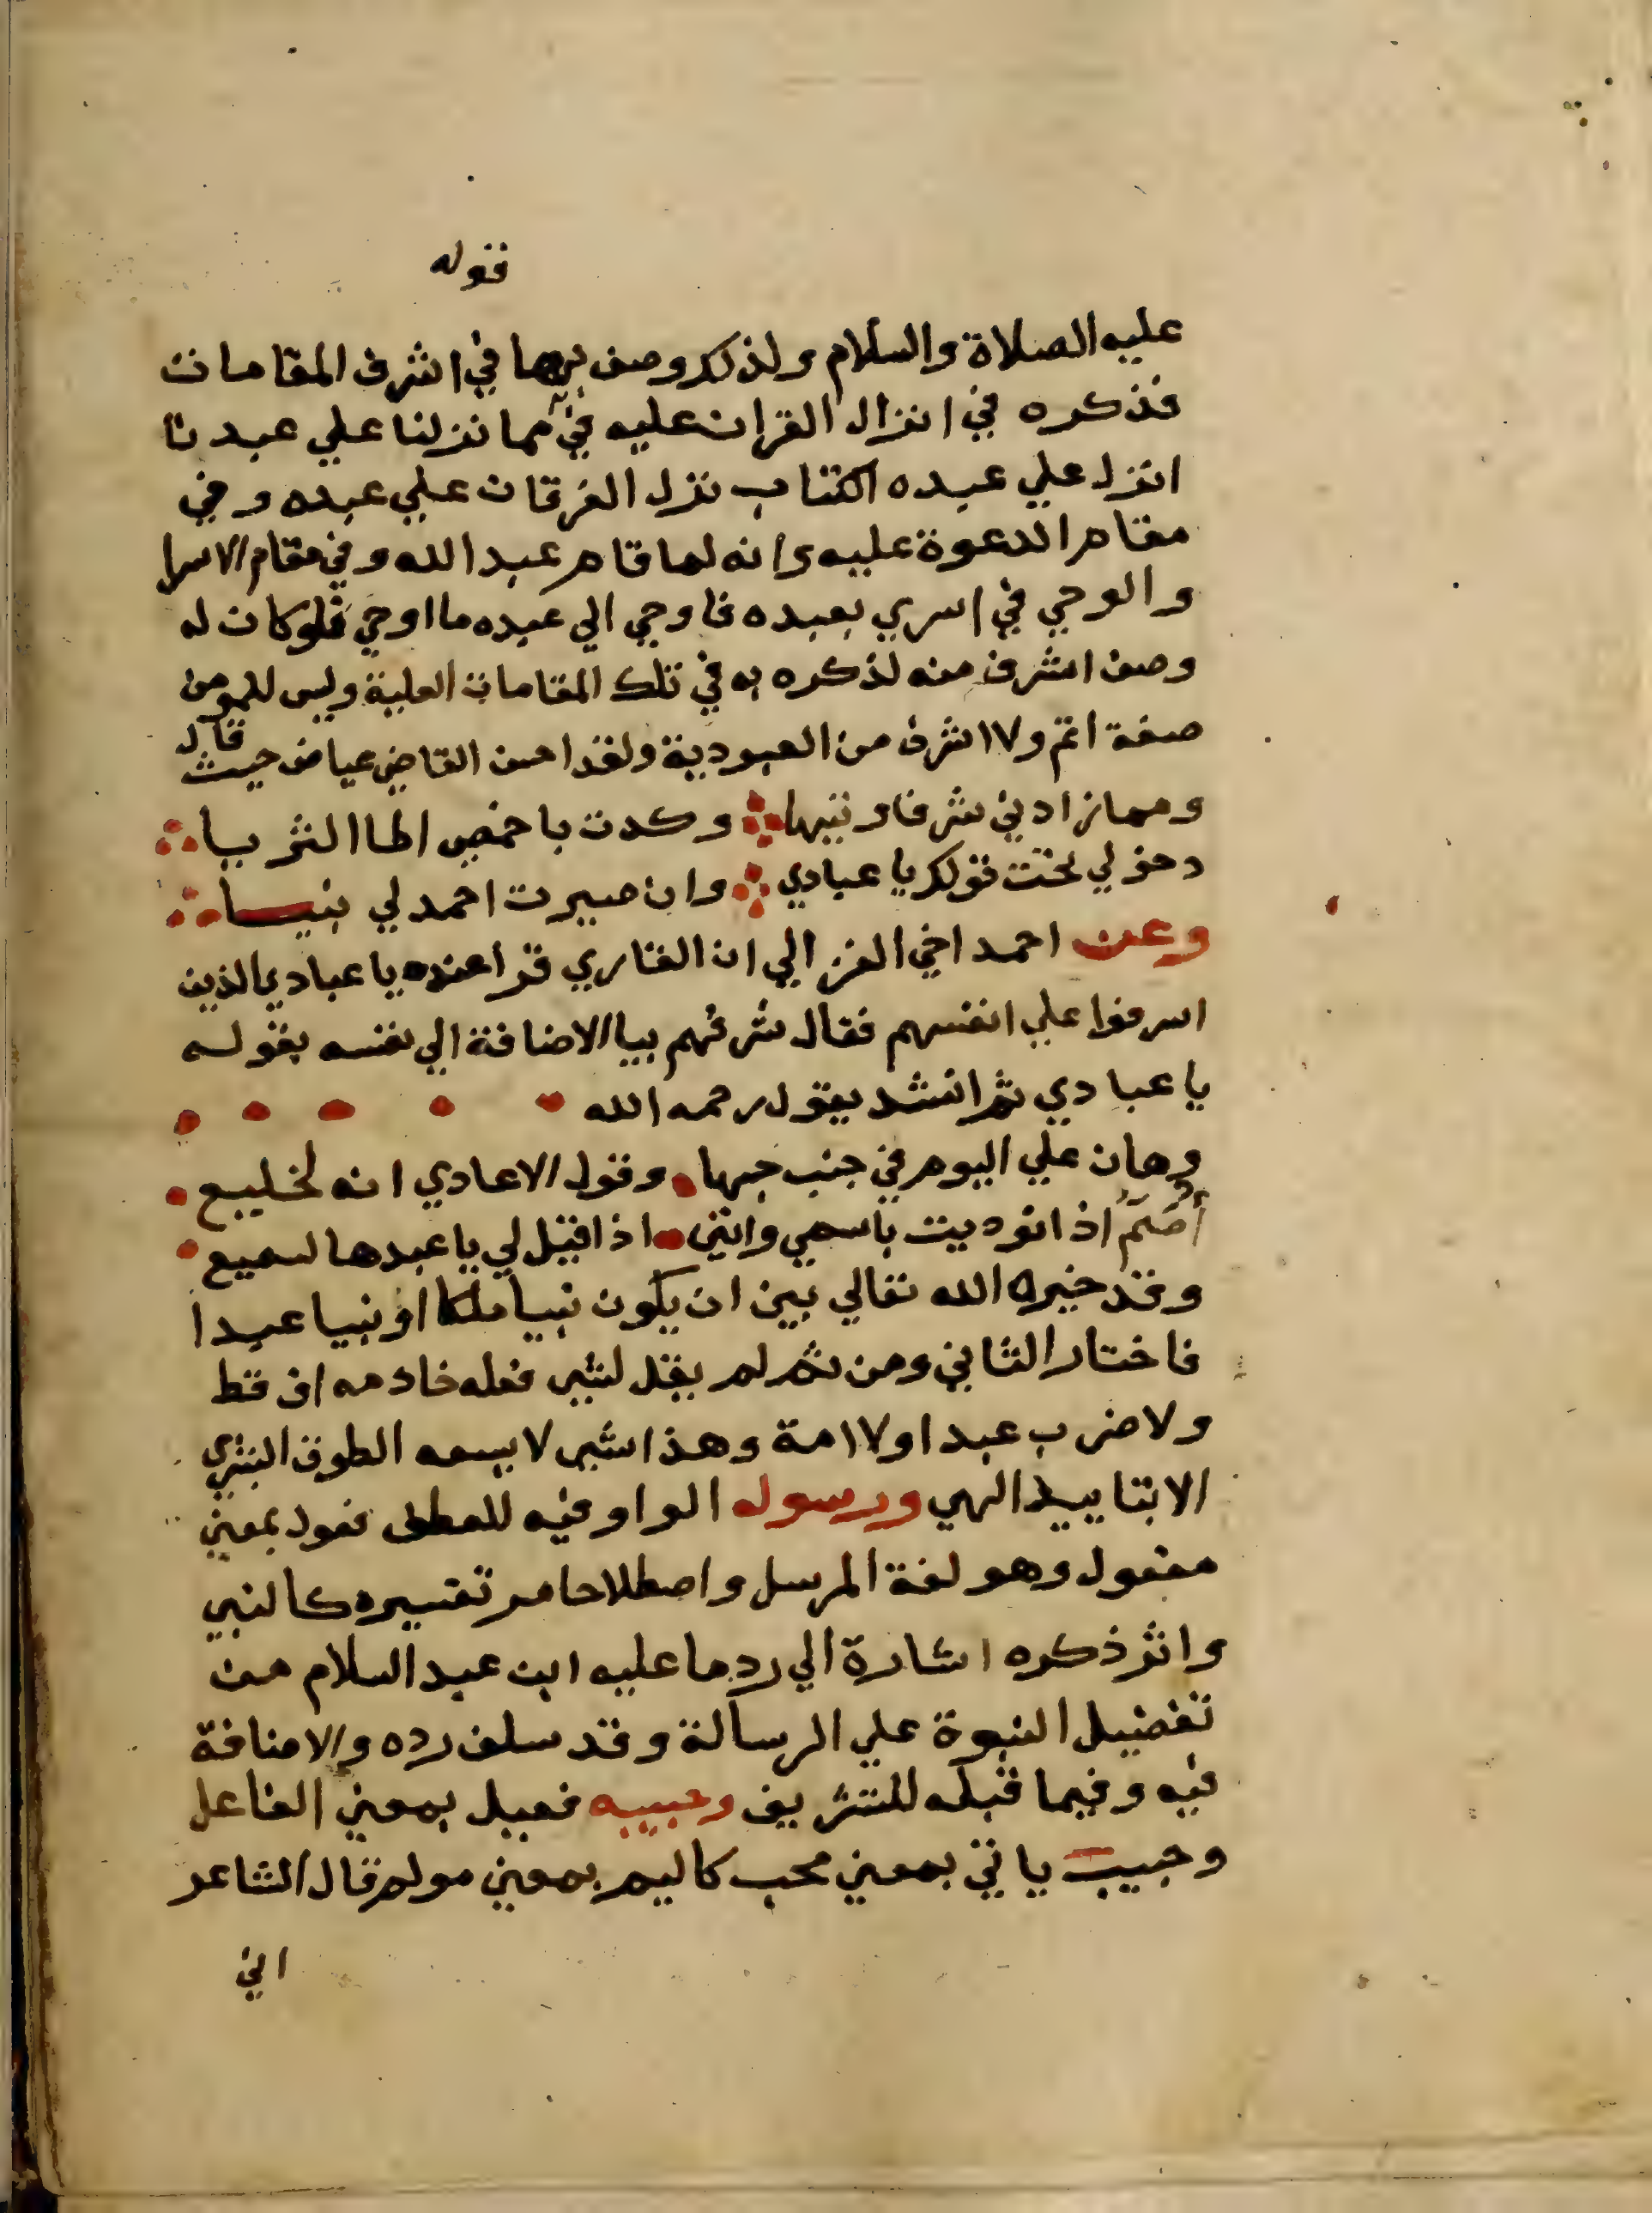 فقوله
عليه الصلاة والسلام ولذلك وصف بها في اشرف المقامات
فذكره في انزال القران عليه في مما نزلنا علي عبدنا
انزل علي عبده الكتاب نزل الفرقان علي عبده وفي
مقام الدعوة عليه وانه لما قام عبد الله وفي مقام الاسرا
والوحي في اسري بعبده فاوحي الي عبده ما اوحي فلو كان له
وصف اشرف منه لذكره به في تلك المقامات العلية وليس للمومن
صفة اتم ولا اشرف من العبودية ولقد احسن القاضي عياض حيث قال
ومما زادني شرفا وتيها وكدت باخمصي اطا الثريا
دخولي تحت قولك يا عبادي وان صيرت احمد لي نبيا
وعن احمد اخي الغزالي ان القاري قرا عنده يا عبادي الذين
اسرفوا علي انفسهم فقال شرفهم بيا الاضافة الي نفسه بقوله
يا عبادي ثم انشد يقول رحمه الله
وهان علي اليوم في جنب حبها وقول الاعادي انه لخليع
أصَمُّ اذا نوديت باسمي وانني اذا قيل لي يا عبدها لسميع
وقد خيره الله تعالي بين ان يكون نبيا ملكا او نبيا عبدا
فاختار الثاني ومن ثم لم يقل لشي فعله خادمه اف قط
ولا ضرب عبدا ولا امة وهذا شي لا يسعه الطوق البشري
الا بتاييد الهي ورسوله الواو فيه للعطف فعول بمعني
مفعول وهو لغة المرسل واصطلاحا مر تفسيره كالنبي
واثر ذكره اشارة الي رد ما عليه ابن عبد السلام من
تفضيل النبوة علي الرسالة وقد سلف رده والاضافة
فيه وفيما قبله للتشريف وحبيبه فعيل بمعني الفاعل
وحبيب ياتي بمعني محب كاليم بمعني مولم قال الشاعر